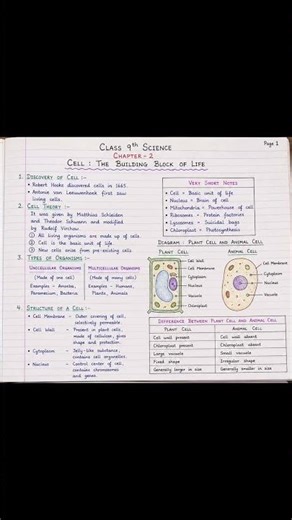 Page 1
Class 9th Science
Chapter - 2
Cell : The Building Block of Life
1. Discovery of Cell :-
• Robert Hooke discovered cells in 1665.
• Antonie van Leeuwenhoek first saw
living cells.
2. Cell Theory :-
It was given by Matthias Schleiden
and Theodor Schwann and modified
by Rudolf Virchow.
① All living organisms are made up of cells.
② Cell is the basic unit of life.
③ New cells arise from pre-existing cells.
3. Types of Organisms :-
Unicellular Organisms
(Made of one cell)
Examples - Amoeba,
Paramecium, Bacteria
Multicellular Organisms
(Made of many cells)
Examples - Humans,
Plants, Animals
4. Structure of a Cell :-
• Cell Membrane - Outer covering of cell,
selectively permeable.
• Cell Wall - Present in plant cells,
made of cellulose, gives
shape and protection.
• Cytoplasm - Jelly-like substance,
contains cell organelles.
• Nucleus - Control center of cell,
contains chromosomes
and genes.
Very Short Notes
• Cell = Basic unit of life
• Nucleus = Brain of cell
• Mitochondria = Powerhouse of cell
• Ribosomes = Protein factories
• Lysosomes = Suicidal bags
• Chloroplast = Photosynthesis
Diagram : Plant Cell and Animal Cell
Plant Cell
Cell Wall
Cell Membrane
Cytoplasm
Nucleus
Vacuole
Chloroplast
Animal Cell
Cell Membrane
Cytoplasm
Nucleus
Vacuole
Difference Between Plant Cell and Animal Cell
Plant Cell Animal Cell
Cell wall present Cell wall absent
Chloroplast present Chloroplast absent
Large vacuole Small vacuole
Fixed shape Irregular shape
Generally larger in size Generally smaller in size